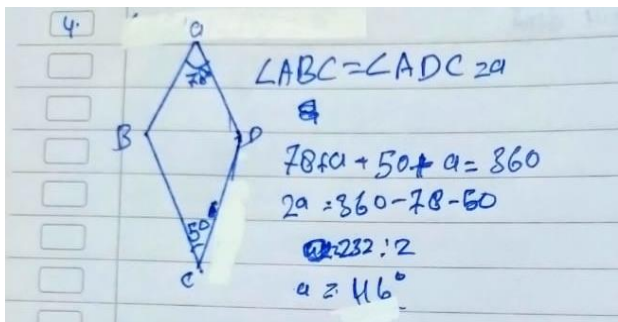 4.
a
78°
B
D
50
C
∠ABC=∠ADC=a
78+a+50+a=360
2a=360-78-50
=232:2
a=116°